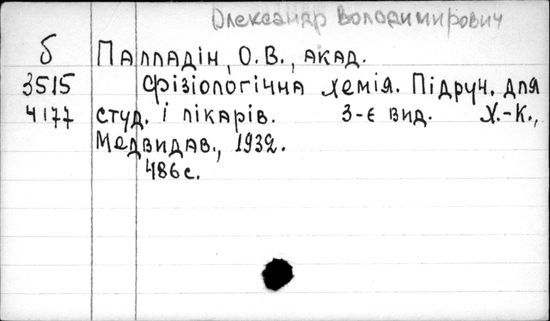 Олександр Володимирович
б Палладін, О.В., акад.
3515 Фізіологічна хемія. Підруч. для
4177 студ. і лікарів. 3-є вид. Х.-К.,
Медвидав., 1932.
486 с.